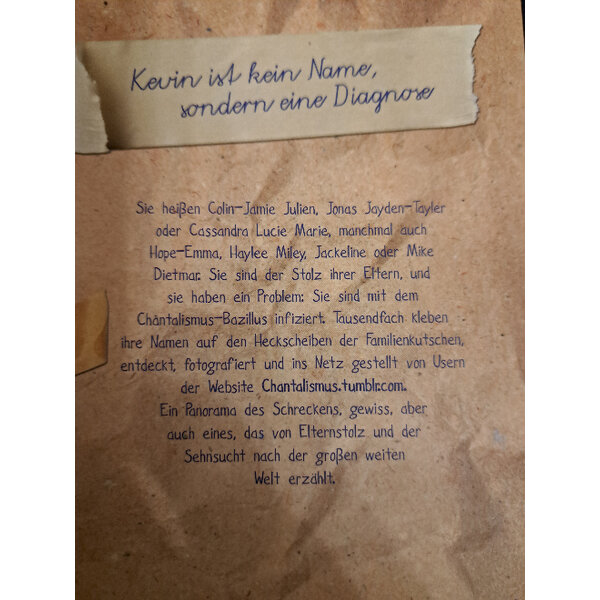 Kevin ist kein Name,
sondern eine Diagnose
Sie heißen Colin-Jamie Julien, Jonas Jayden-Tayler
oder Cassandra Lucie Marie, manchmal auch
Hope-Emma, Haylee Miley, Jackeline oder Mike
Dietmar. Sie sind der Stolz ihrer Eltern, und
sie haben ein Problem: Sie sind mit dem
Chantalismus-Bazillus infiziert. Tausendfach kleben
ihre Namen auf den Heckscheiben der Familienkutschen,
entdeckt, fotografiert und ins Netz gestellt von Usern
der Website Chantalismus.tumblr.com.
Ein Panorama des Schreckens, gewiss, aber
auch eines, das von Elternstolz und der
Sehnsucht nach der großen weiten
Welt erzählt.